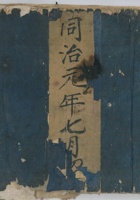 同治元年七月